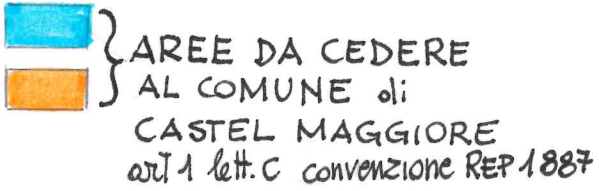 AREE DA CEDERE
AL COMUNE di
CASTEL MAGGIORE
art 1 lett. C convenzione REP 1887